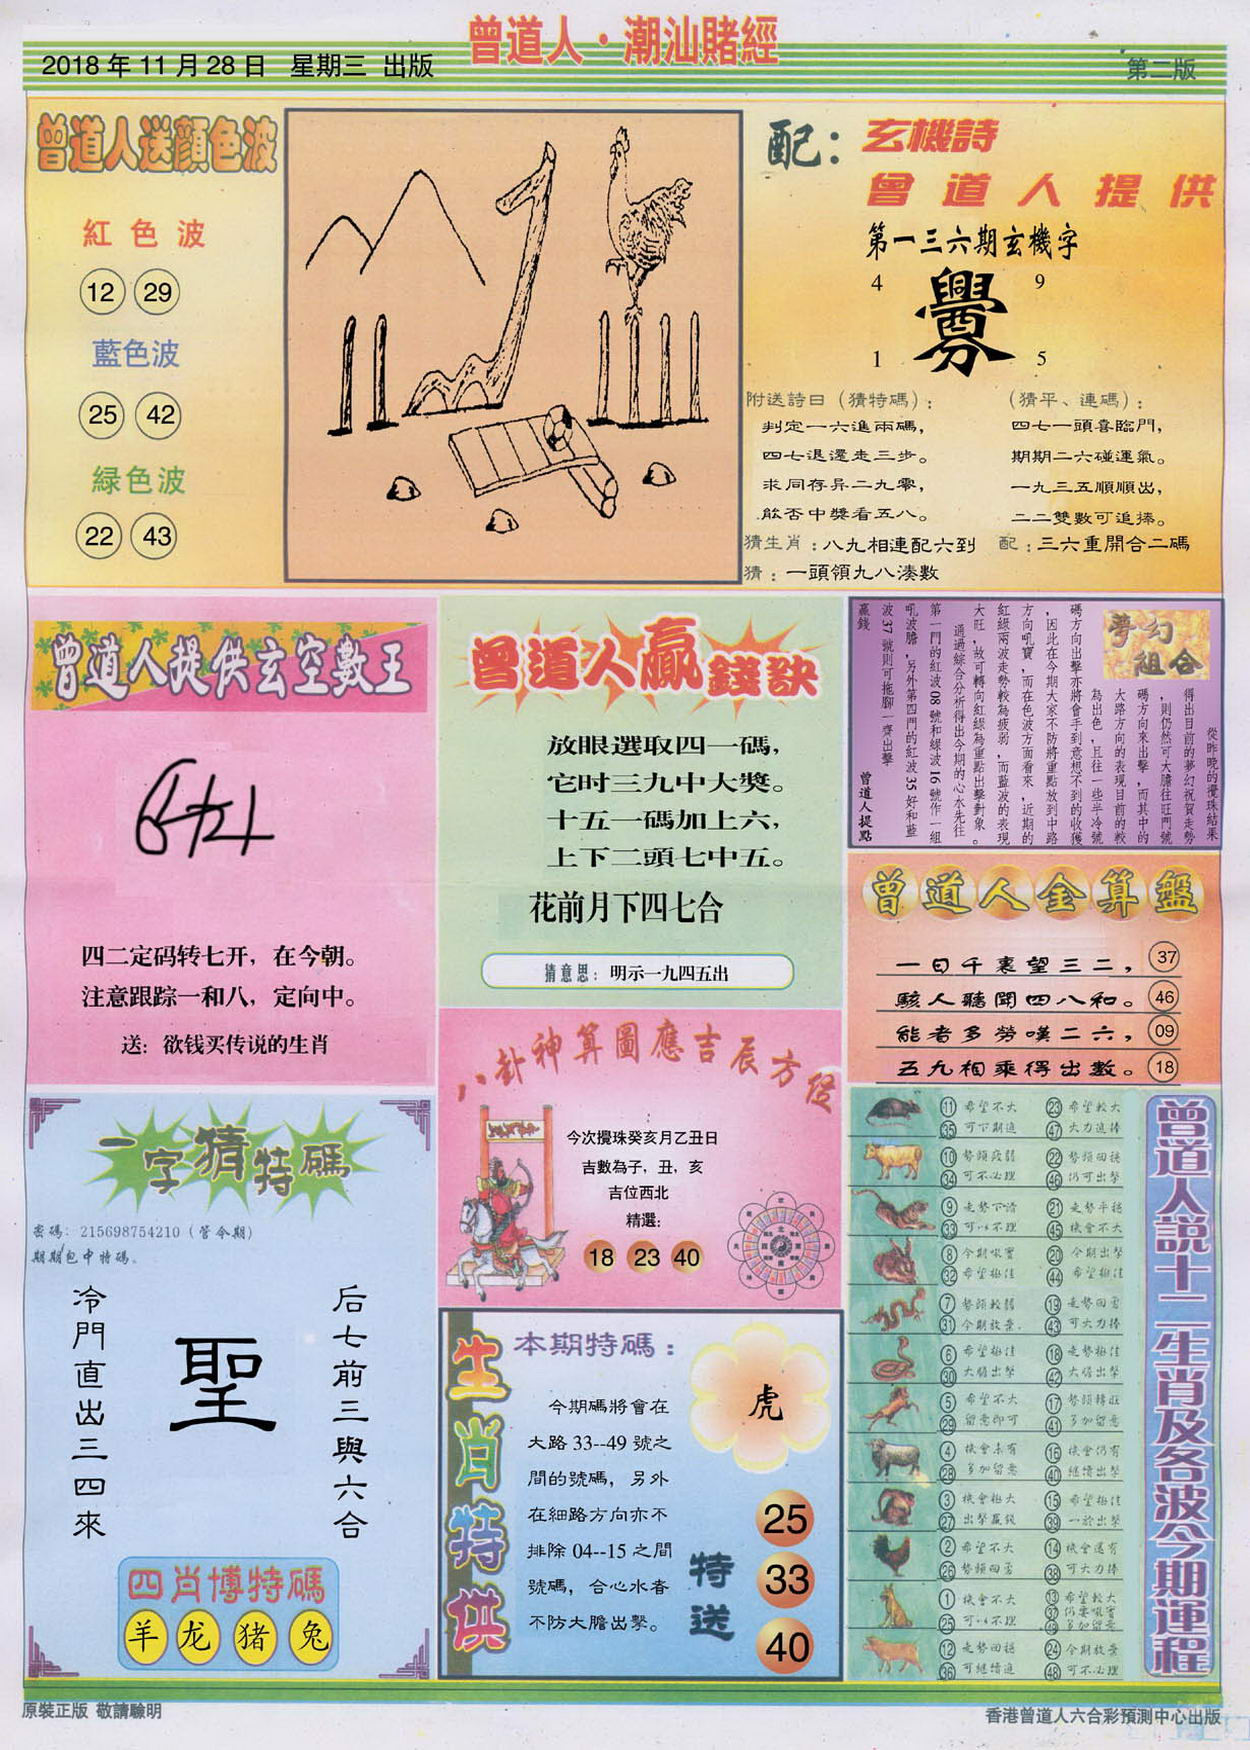 曾道人·潮汕賭經
2018年11月28日 星期三 出版
第二版
曾道人送顏色波
紅色波
12 29
藍色波
25 42
緑色波
22 43
配：玄機詩
曾道人提供
第一三六期玄機字
4 9
爨
1 5
附送詩曰（猜特碼）：
判定一六進兩碼，
四七退還走三步。
求同存异二九零，
能否中獎看五八。
（猜平、連碼）：
四七一頭喜臨門，
期期二六碰運氣。
一九三五順順出，
二二雙數可追捧。
猜生肖：八九相連配六到
配：三六重開合二碼
猜：一頭領九八湊數
曾道人提供玄空數王
四二定码转七开，在今朝。
注意跟踪一和八，定向中。
送：欲钱买传说的生肖
曾道人贏錢訣
放眼選取四一碼，
它时三九中大獎。
十五一碼加上六，
上下二頭七中五。
花前月下四七合
猜意思：明示一九四五出
夢幻組合
從昨晚的攪珠結果
得出目前的夢幻祝賀走勢
，則仍然可大膽往旺門號
碼方向來出擊，而其中的
大路方向的表現目前的較
為出色，且往一些半冷號
碼方向出擊亦將會手到意想不到的收獲
，因此在今期大家不防將重點放到中路
方向吼寶，而在色波方面看來，近期的
紅綠兩波走勢較為疲弱，而藍波的表現
大旺，故可轉向紅綠為重點出擊對象。
通過綜合分析得出今期的心水先往
第一門的紅波08號和綠波16號作一組
吼波膽，另外第四門的紅波35好和藍
波37號則可拖腳一齊出擊
贏錢
曾道人提點
曾道人金算盤
一日千裏望三二， 37
駭人聽聞四八和。 46
能者多勞嘆二六， 09
五九相乘得出數。 18
八卦神算圖應吉辰方位
今次攪珠癸亥月乙丑日
吉數為子，丑，亥
吉位西北
精選：
18 23 40
一字猜特碼
密碼：215698754210（管今期）
期期包中特碼。
冷門直出三四來
聖
后七前三與六合
四肖博特碼
羊 龙 猪 兔
生肖特供
本期特碼：
虎
今期碼將會在
大路33--49號之
間的號碼，另外
在細路方向亦不
排除04--15之間
號碼，合心水者
不防大膽出擊。
特送
25
33
40
曾道人説十二生肖及各波今期運程
11 希望不大 23 希望較大
35 可下期追 47 大力追捧
10 勢頭疲弱 22 勢頭回穩
34 可不必理 46 仍可出擊
9 走勢下滑 21 走勢平穩
33 可以不理 45 機會不大
8 今期吼寶 20 今期出擊
32 希望極佳 44 希望極佳
7 勢頭較弱 19 走勢回勇
31 今期放棄. 43 可大力捧
6 希望極佳 18 走勢極佳
30 大膽出擊 42 大膽出擊
5 希望不大 17 勢頭轉旺
29 留意即可 41 多加留意
4 機會未有 16 機會仍有
28 多加留意 40 繼續出擊
3 機會極大 15 希望極佳
27 出擊贏錢 39 一於出擊
2 希望不大 14 機會還有
26 勢頭回勇 38 可大力捧
1 機會不大 13 希望較大
25 可以不理 37 仍要吼寶
49 多加留意
12 走勢回穩 24 今期放棄
36 可繼續追 48 可不必理
原裝正版 敬請驗明
香港曾道人六合彩預測中心出版